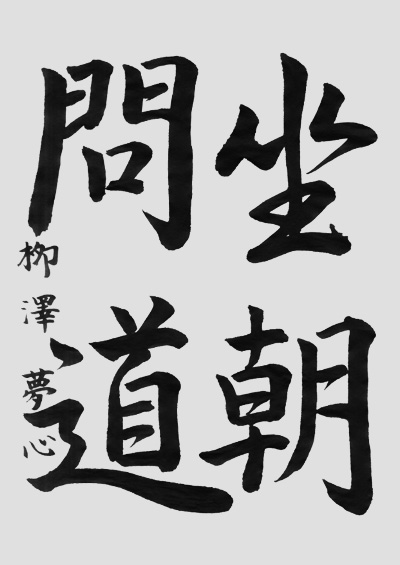 坐朝
問道
柳澤夢心